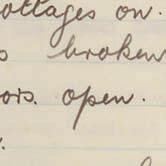 ottages on.
broken
ors. open.